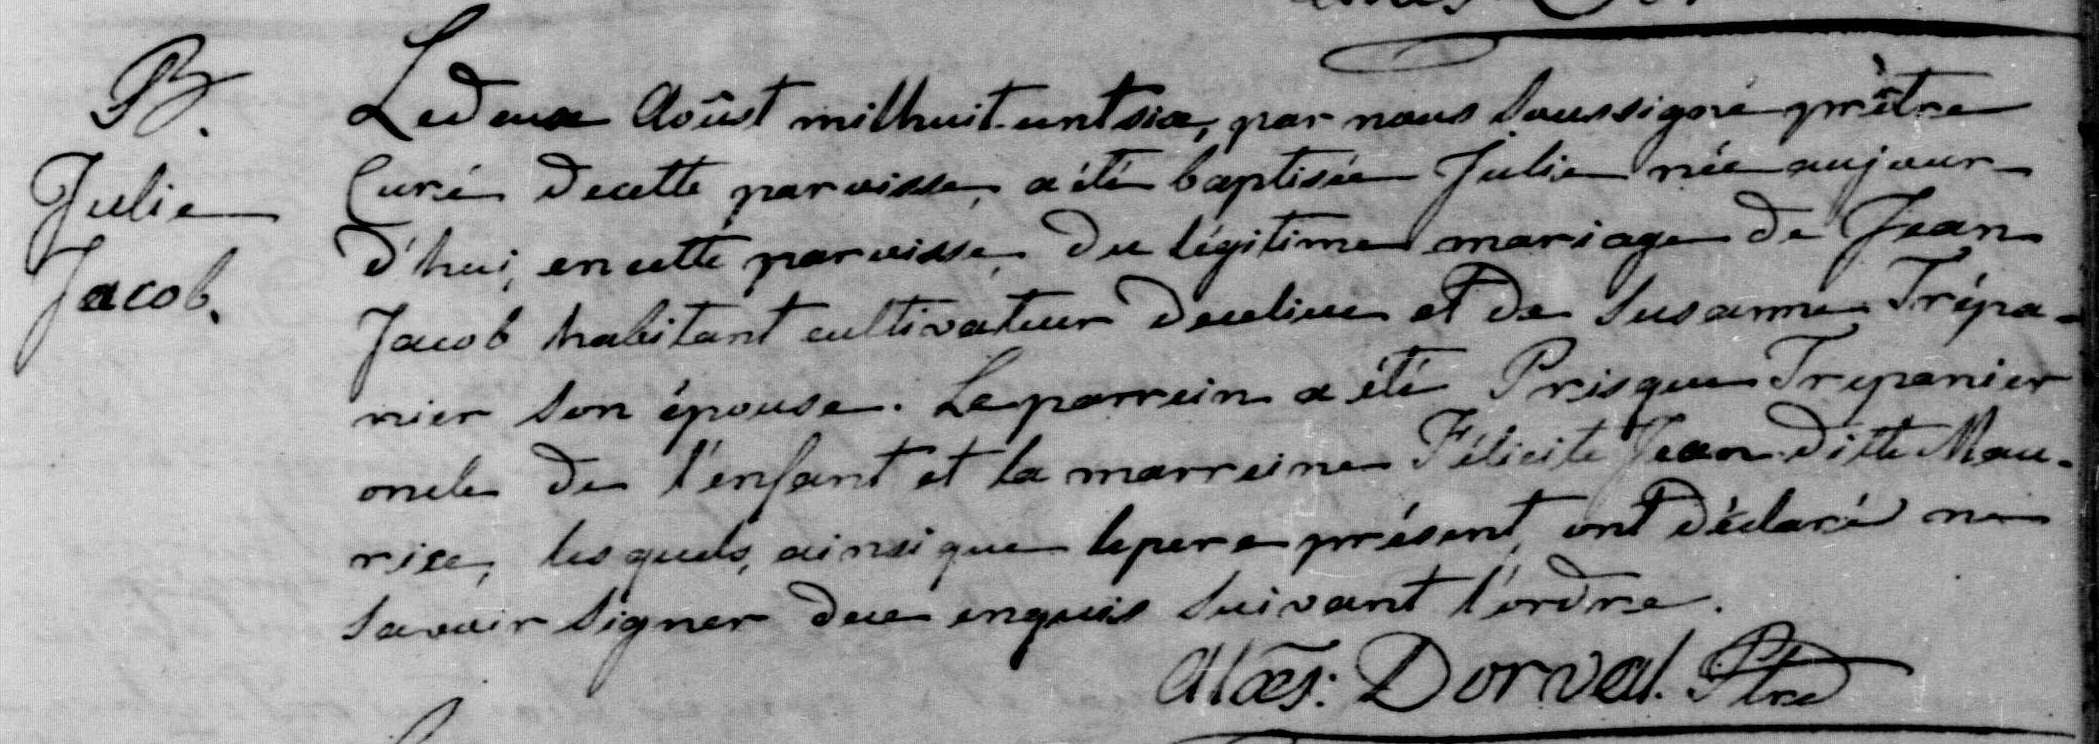 B.
Julie
Jacob.
Le deux Aoûst mil huit-cent six, par nous soussigné prêtre
Curé de cette paroisse, a été baptisée Julie née aujour-
d'hui, en cette paroisse, du légitime mariage de Jean
Jacob habitant cultivateur de ce lieu et de Susanne Trépa-
nier son épouse. Le parrein a été Prisque Trepanier
oncle de l'enfant et la marreine Félicité Jean ditte Mau-
rice, lesquels, ainsi que le pere présent, ont déclaré ne
savoir signer de ce enquis suivant l'ordre.
Alexs: Dorval. Ptre